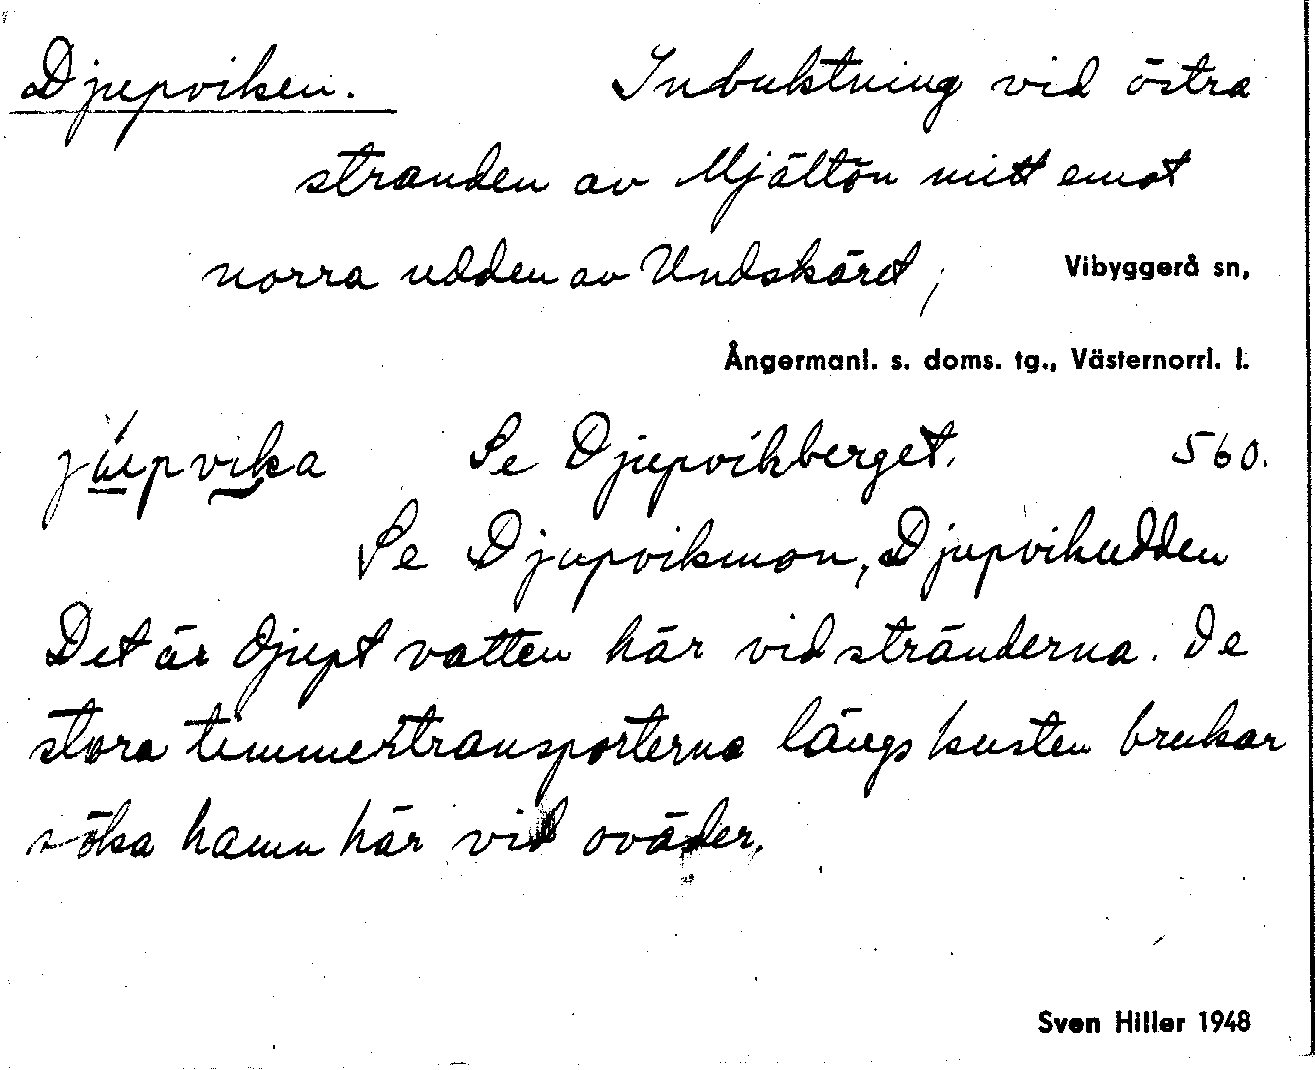 Djupviken. Inbuktning vid östra
stranden av Mjältön mitt emot
norra udden av Undskäret, Vibyggerå sn,
Ångermanl. s. doms. tg., Västernorrl. l.
Se Djupvikberget. 560.
Se Djupvikmon, Djupvikudden
Det är djupt vatten här vid stränderna. De
stora timmertransporterna längs kusten brukar
söka hamn här vid oväder.
Sven Hiller 1948